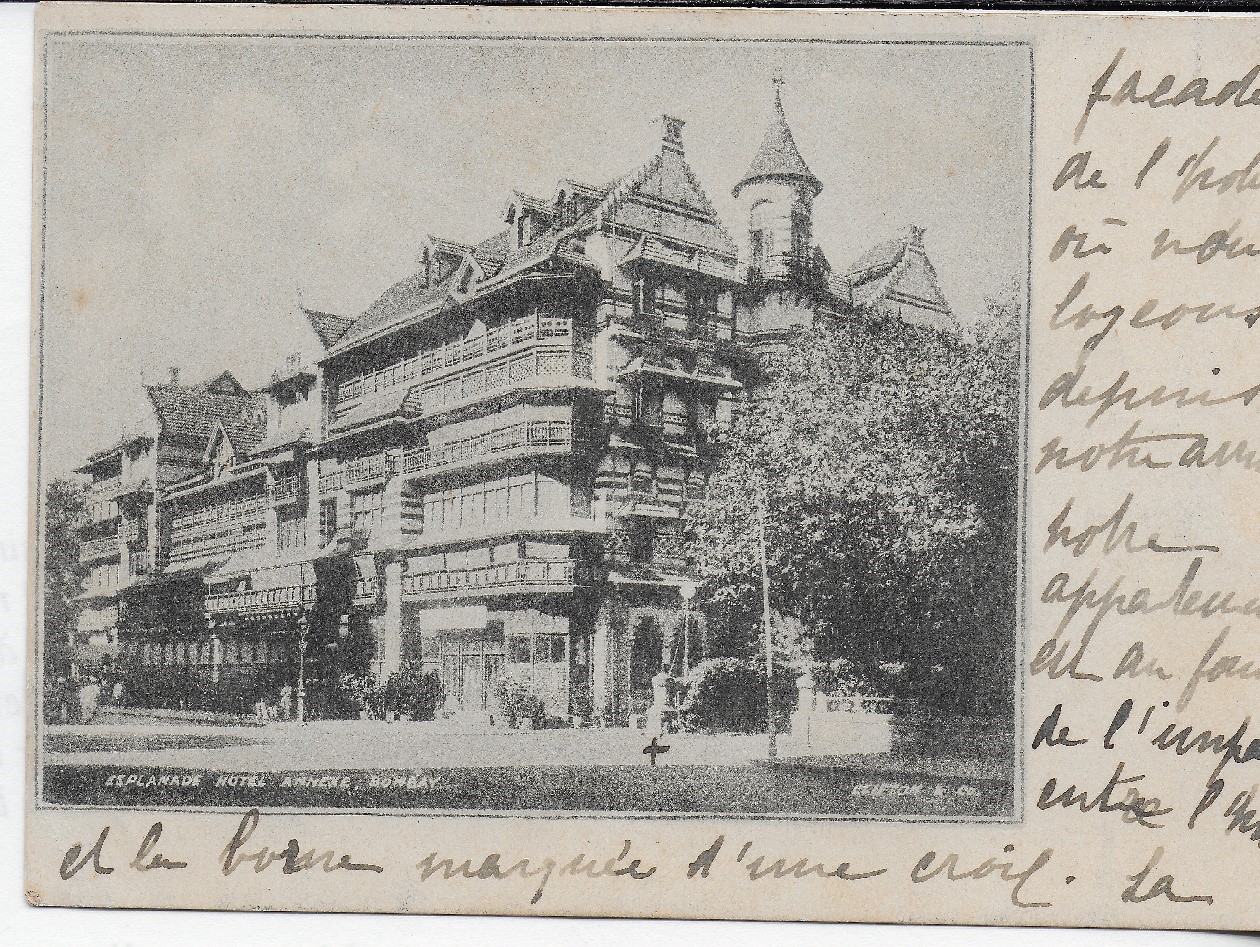 ESPLANADE HOTEL ANNEXE, BOMBAY
CLIFTON & Co.
façade
de l'hot
où nou
logeons
depuis
notre arri
notre
appartem
est au fon
de l'impa
entre l'h
et la borne marquée d'une croix. La